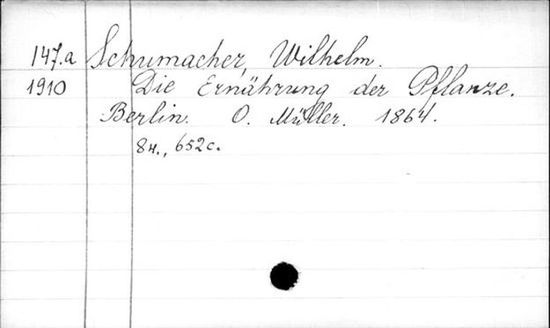 147.a Schumacher, Wilhelm.
1910 Die Ernährung der Pflanze.
Berlin. O. Müller. 1864.
8н., 652с.